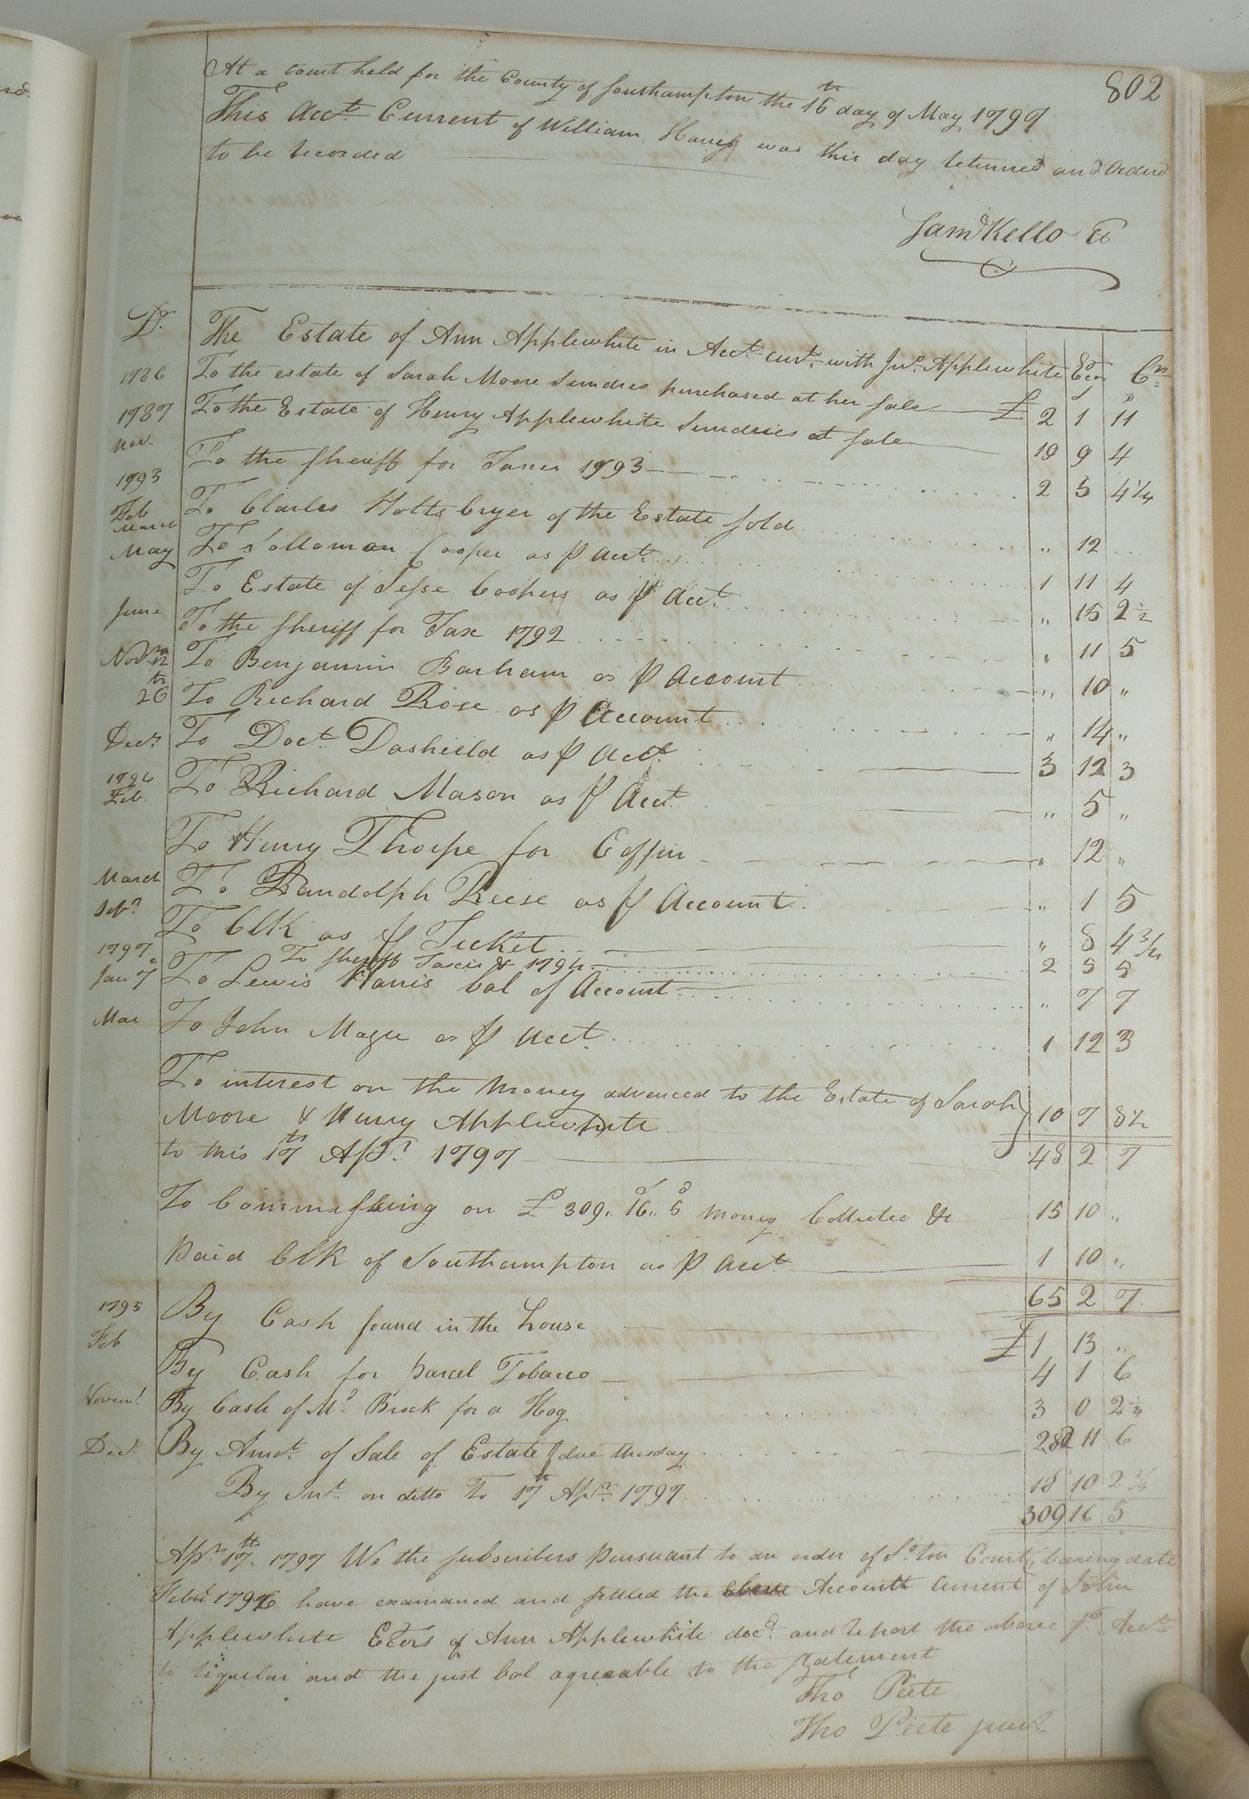 802
At a court held for the County of Southampton the 15th day of May 1797
This Acct. Current of William Harris was this day returned and Ordered
to be recorded
Saml Kello Cl
Dr. The Estate of Ann Applewhite in Acct. curt. with Jno. Applewhite Exor Cr.
1786 To the estate of Sarah Moore Sundries purchased at her sale £ 2 1 11
1787 To the Estate of Henry Applewhite Sundries at sale 19 9 4
Nov. To the sheriff for Taxes 1793 2 5 4 1/4
1793
Feb To Charles Holts Cryer of the Estate sold " 12
March
May To Solloman Cooper as P Acct. 1 11 4
To Estate of Jesse Coopers as P Acct. " 15 2 1/2
June To the sheriff for Tax 1792 " 11 5
Novm 12 To Benjamin Barham as P Account " 10 "
26th To Richard Rose as P Account " 14 "
Decr. To Doct. Dashield as P Acct. 3 12 3
1794
Feb. To Richard Mason as P Acct. " 5 "
To Henry Thorpe for Coffin " 12 "
March To Randolph Reese as P Account " 1 5
To Clk as P Ticket " 8 4 3/4
1797 To sheriff Taxes & 1794 2 5 5
Jan 7 To Lewis Harris bal of Account " 7 7
Mar To John Magee as P Acct. 1 12 3
To interest on the Money advanced to the Estate of Sarah
Moore & Henry Applewhite 10 7 8 1/2
to this 17th Apr. 1797 48 2 7
To Commisssing on £ 309. 16. 5 money Collected &c 15 10 "
paid Clk of Southampton as P Acct 1 10 "
65 2 7
1795
Feb By Cash found in the house £ 1 13 "
By Cash for parcel Tobacco 4 1 6
Novemr. By Cash of Mr. Brock for a Hog 3 0 2 1/4
Decr. By Amot. of Sale of Estate due thusday 282 11 6
By Int. on ditto To 17th Apr. 1797 18 10 2 3/4
309 16 5
Apr. 17th. 1797 We the subscribers pursuant to an order of So.ton County baring date
Feby 1796 have examaned and settled the Accountt Current of John
Applewhite Exors of Ann Applewhite decd. and report the above sd. Acct.
to be regular and the just bal agreeable to the statement
Tho Peete
Tho Peete junr.